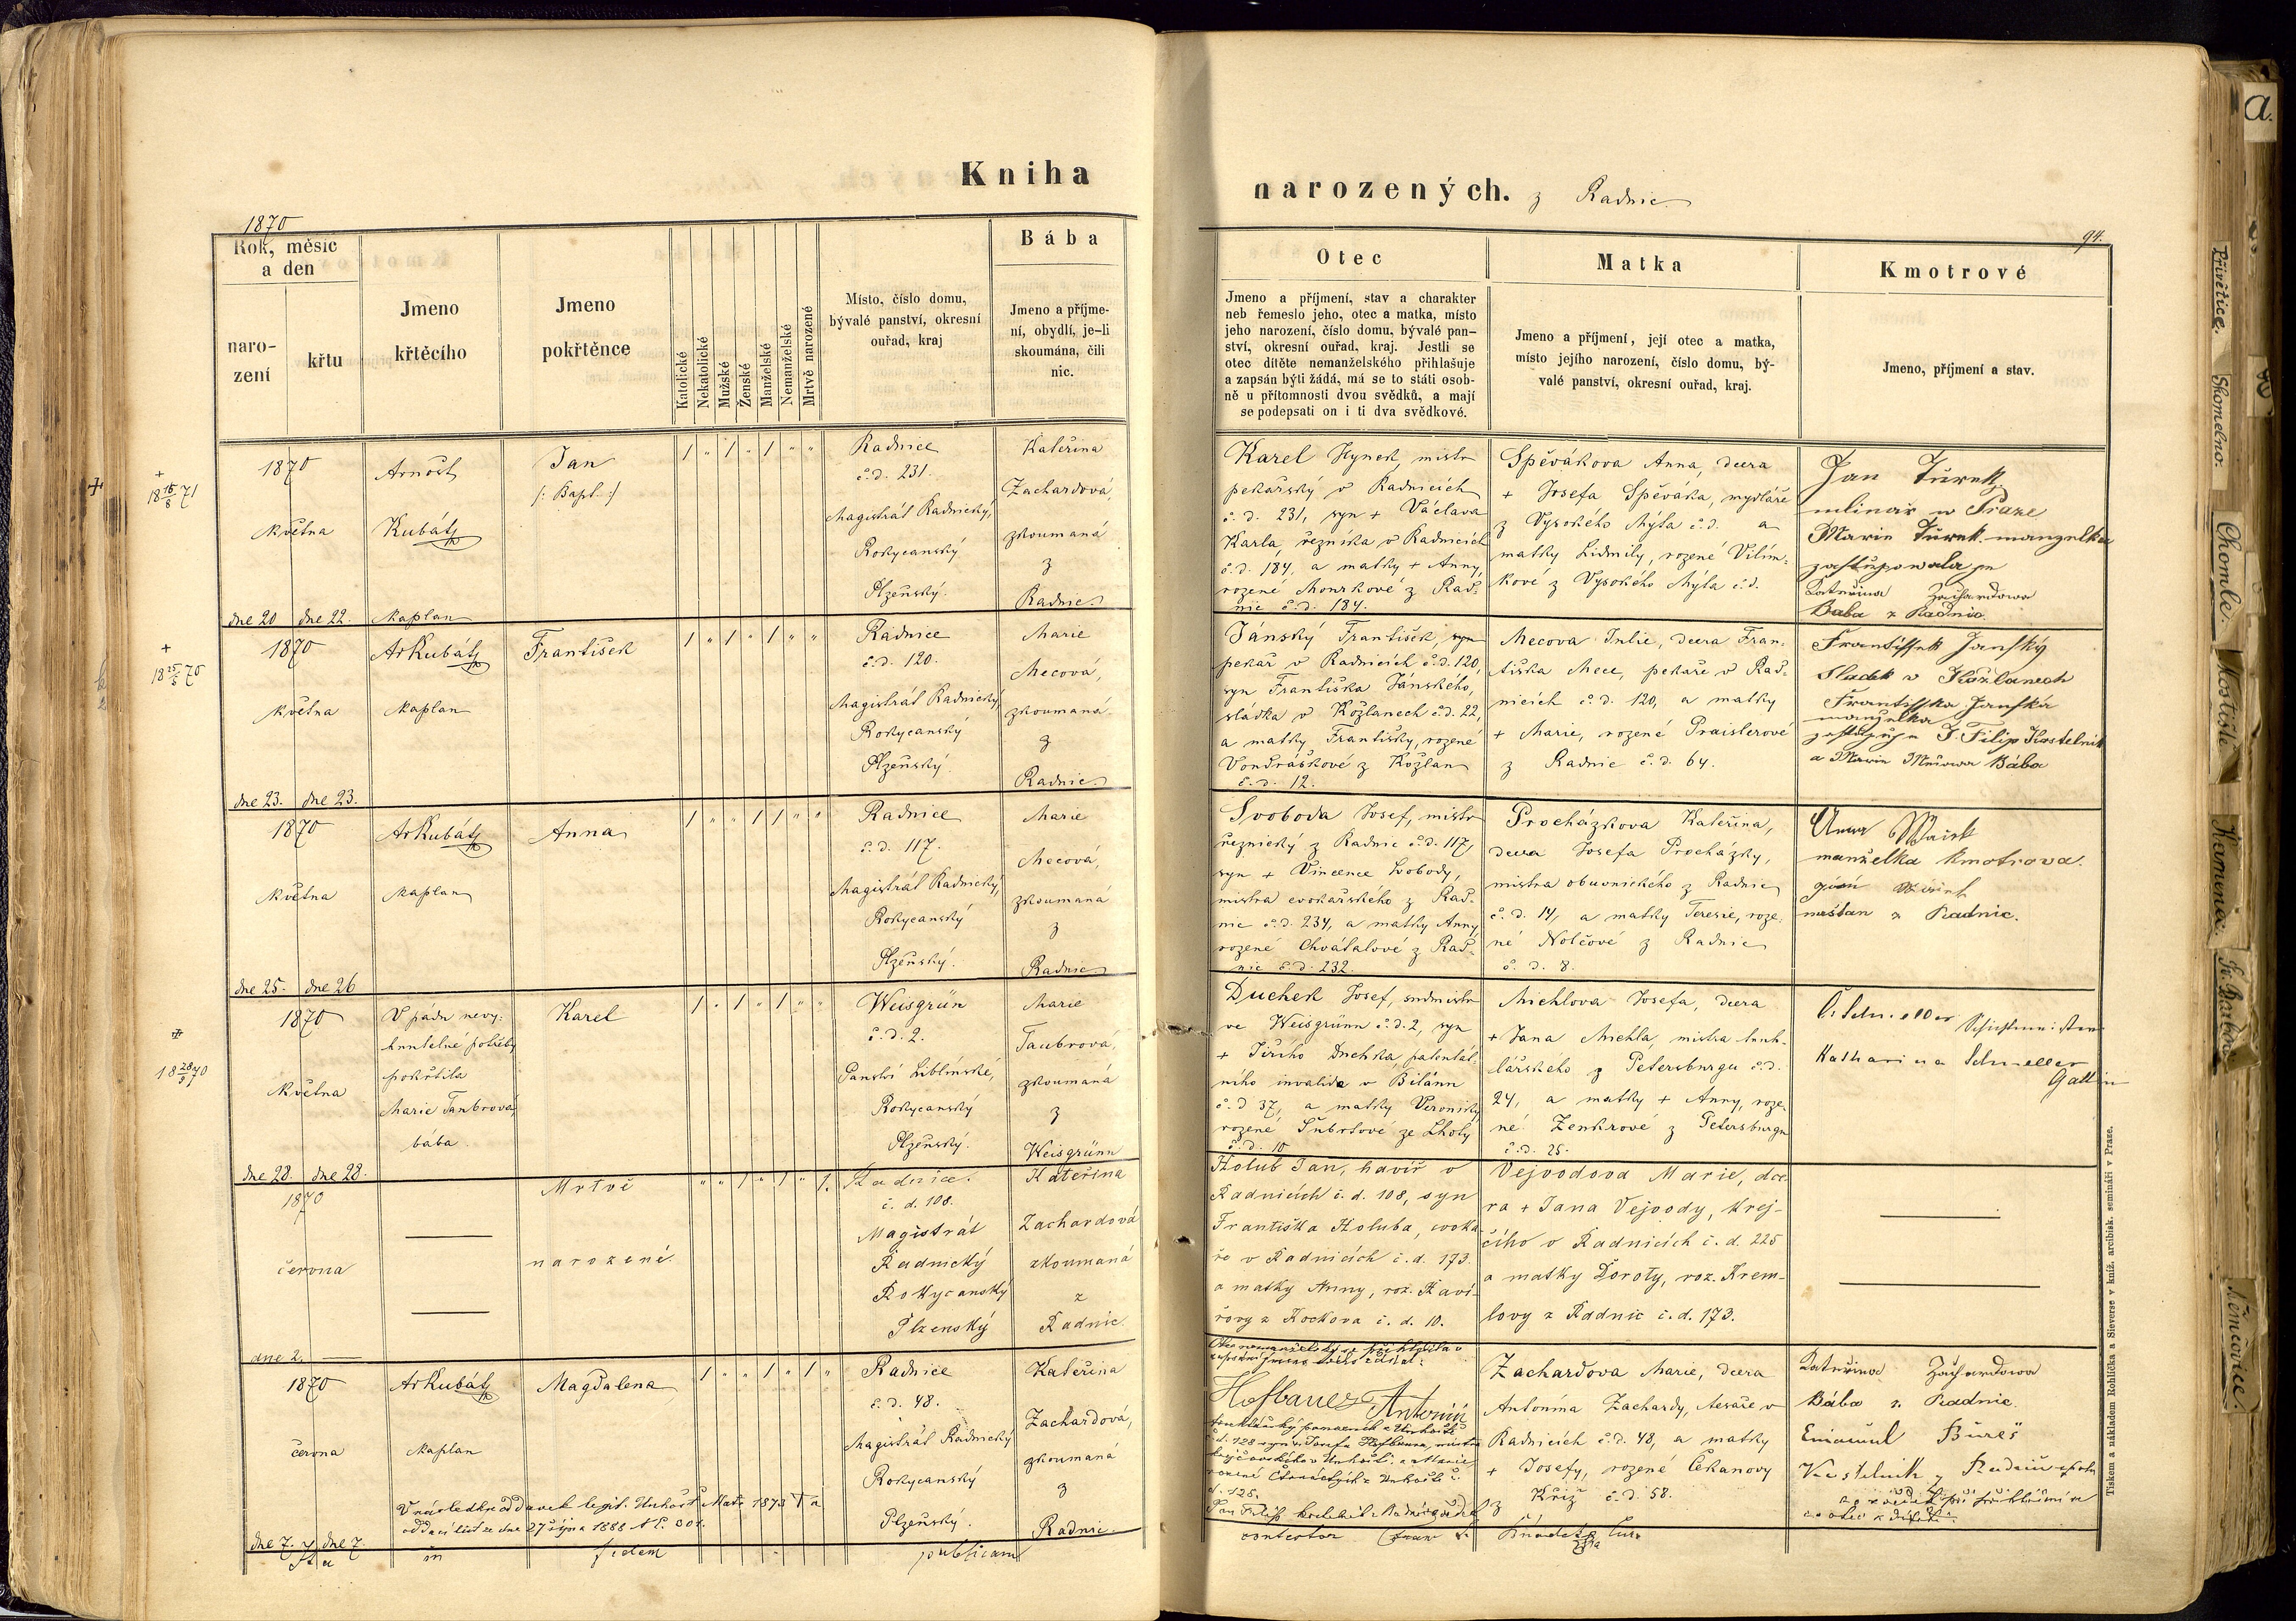 Kniha
narozených. z Radnic
1870
94.
Rok, měsíc
a den
naro-
zení
křtu
Jmeno
křtěcího
Jmeno
pokřtěnce
Katolické
Nekatolické
Mužské
Ženské
Manželské
Nemanželské
Mrtvě narozené
Místo, číslo domu,
bývalé panství, okresní
ouřad, kraj
Bába
Jmeno a příjme-
ní, obydlí, je-li
skoumána, čili
nic.
Otec
Jmeno a příjmení, stav a charakter
neb řemeslo jeho, otec a matka, místo
jeho narození, číslo domu, bývalé pan-
ství, okresní ouřad, kraj. Jestli se
otec dítěte nemanželského přihlašuje
a zapsán býti žádá, má se to státi osob-
ně u přítomnosti dvou svědků, a mají
se podepsati on i ti dva svědkové.
Matka
Jmeno a příjmení, její otec a matka,
místo jejího narození, číslo domu, bý-
valé panství, okresní ouřad, kraj.
Kmotrové
Jmeno, příjmení a stav.
+
18 15/8 71
1870
května
dne 20 dne 22.
Arnošt
Kubát
kaplan
Jan
/: Bapt. :/
1 " 1 " 1 " "
Radnice
č.d. 231.
Magistrát Radnický,
Rokycanský
Plzeňský.
Kateřina
Zachardová,
zkoumaná
z
Radnic
Karel Hynek, mistr
pekařský v Radnicích
č. d. 231, syn + Václava
Karla, řezníka v Radnicích
č.d. 184, a matky + Anny,
rozené Monskové z Rad-
nic č.d. 184.
Spěvákova Anna, dcera
+ Josefa Spěváka, mydláře
z Vysokého Mýta č.d. a
matky Lidmily, rozené Vilím-
kové z Vysokého Mýta č.d.
Jan Turek
mlinař w Praze
Marie Turek manzelka
zastupowala je
Kateřina Zachardowa
Baba z Radnic.
+
18 25/5 70
1870
května
dne 23. dne 23.
ArKubát
kaplan
František
1 " 1 " 1 " "
Radnice
č.d. 120.
Magistrát Radnický
Rokycanský
Plzeňský.
Marie
Mecová,
zkoumaná
z
Radnic
Jánský František, syn
pekař v Radnicích č.d. 120,
syn Františka Jánského,
sládka v Kožlanech č.d. 22,
a matky Františky, rozené
Vondráškové z Kožlan
č.d. 12.
Mecova Julie, dcera Fran-
tiška Mece, pekaře v Rad-
nicích č.d. 120, a matky
+ Marie, rozené Praislerové
z Radnic č.d. 64.
Frantissek Janský
Sladek v Kožlanech
Frantisska Janská
manželka
zastupuje J. Filip Kostelnik
a Marie Mecowa Bába
1870
května
dne 25. dne 26
ArKubát
kaplan
Anna
1 " " 1 1 " "
Radnice
č.d. 117.
Magistrát Radnický,
Rokycanský
Plzeňský.
Marie
Mecová,
zkoumaná
z
Radnic
Svoboda Josef, mistr
řeznický z Radnic č.d. 117,
syn + Vincence Svobody,
mistra cvokařského z Rad-
nic č.d. 234, a matky Anny,
rozené Chvátalové z Rad-
nic č.d. 232.
Procházkova Kateřina,
dcera Josefa Procházky,
mistra obuvnického z Radnic
č. d. 14, a matky Teresie, roze-
né Nolčové z Radnic
č. d. 8.
Anna
manželka kmotrova.
mestan z Radnic.
18 28/9 70
1870
května
dne 28. dne 28.
V pádu nevy-
hnutelné potřeby
pokřtila
Marie Taubrová
bába.
Karel
1 " 1 " 1 " "
Weisgrün
č.d. 2.
Panství Liblínské,
Rokycanský
Plzeňský.
Marie
Taubrová,
zkoumaná
z
Weisgrünn
Duchek Josef, sudmistr
ve Weisgrünn č.d. 2, syn
+ Jiřího Duchka, patentál-
ního invalida v Bílánu
č.d 37, a matky Veroniky
rozené Šubrtové ze Lhoty
č.d. 10
Michlova Josefa, dcera
+ Jana Michla, mistra truh-
lářského z Petersburgu č.d.
24, a matky + Anny, roze-
né Zenkrové z Petersburgu
č.d. 25.
Schichtmeister
Katharina Schmeller
Gattin
1870
června
dne 2.
Mrtvě
narozené.
" " 1 " 1 " 1.
Radnice.
č. d. 108.
Magistrát
Radnický
Rokycanský
Plzenský
Kateřina
Zachardová
zkoumaná
z
Radnic.
Holub Jan, havíř v
Radnicích č. d. 108, syn
Františka Holuba, cvoka-
ře v Radnicích č. d. 173.
a matky Anny, roz. Haví-
řovy z Kockova č. d. 10.
Vejvodova Marie, dce-
ra + Jana Vejvody, krej-
čího v Radnicích č. d. 225
a matky Doroty, roz. Krem-
lovy z Radnic č. d. 173.
1870
června
dne 7. dne 7.
ArKubát
kaplan
Magdalena
1 " " 1 " 1 "
Radnice
č. d. 48.
Magistrát Radnický
Rokycanský
Plzeňský.
Kateřina
Zachardová,
zkoumaná
z
Radnic.
V následku oddavek legit. Unhošť Matr. 1873
oddací list ze dne 27 října 1888 N. E. 301.
Hofbauer Antonín
č. d. 128 syn Josefa Hofbauera, mistra
č. 128.
Jan Filip kostelnik z Radnic
Zachardova Marie, dcera
Antonína Zachardy, tesaře v
Radnicích č.d. 48, a matky
+ Josefy, rozené Čekanovy
z Kříž č.d. 58.
Kateřina Zachardowa
Bába z Radnic.
Emanuel Bureš
in fidem publicam
Tiskem a nákladem Rohlíčka a Sieverse v kníž. arcibisk. semináři v Praze.
a.
Přívětice.
Skomelno.
Chomle.
Mostiště
Kamenná.
Sv. Barbora
Němčovice.